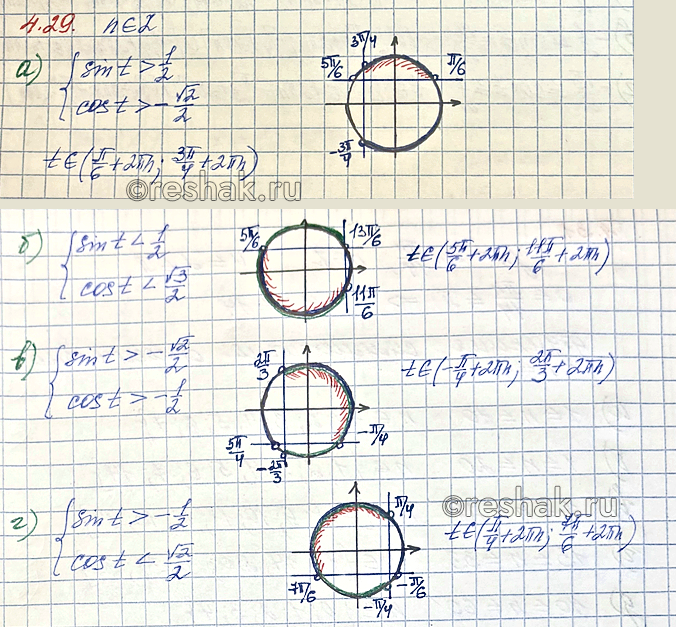 4.29. n∈Z
а) { sin t > 1/2
cos t > -√2/2
3π/4
5π/6 π/6
-3π/4
t∈(π/6+2πn; 3π/4+2πn)
©reshak.ru
б) { sin t < 1/2
cos t < √3/2
5π/6 13π/6
11π/6
t∈(5π/6+2πn; 11π/6+2πn)
в) { sin t > -√2/2
cos t > -1/2
2π/3
5π/4 -π/4
-2π/3
t∈(-π/4+2πn; 2π/3+2πn)
г) { sin t > -1/2
cos t < √2/2
π/4
7π/6 -π/6
-π/4
©reshak.ru
t∈(π/4+2πn; 7π/6+2πn)